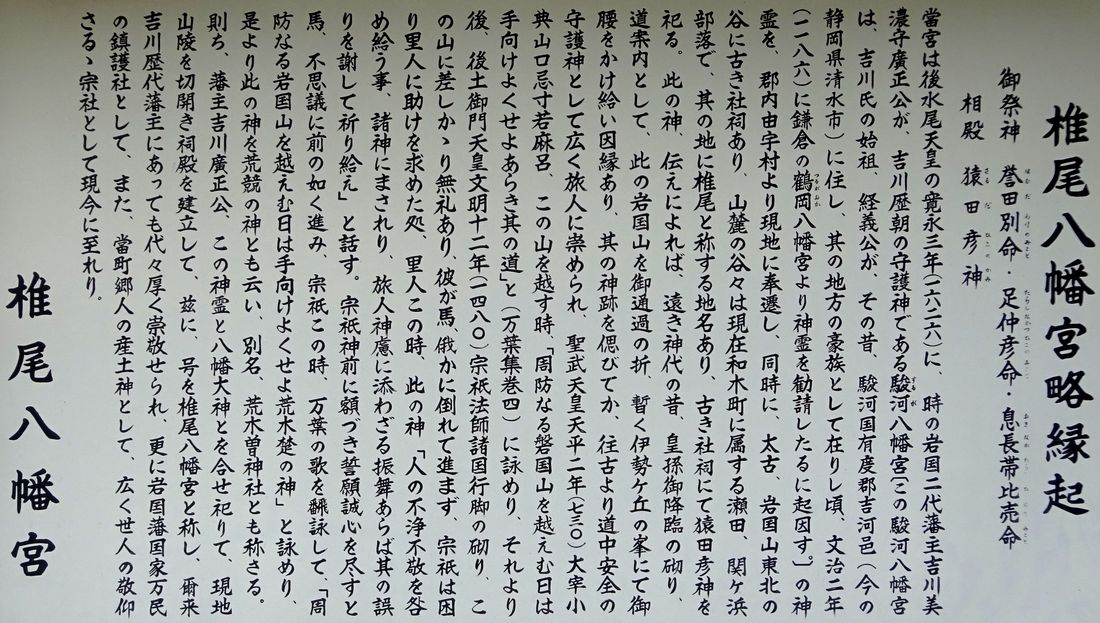 椎尾八幡宮略縁起
御祭神　誉田別命・足仲彦命・息長帯比売命
相殿　猿田彦神
當宮は後水尾天皇の寛永三年（一六二六）に、時の岩国二代藩主吉川美
濃守廣正公が、吉川歴朝の守護神である駿河八幡宮〔この駿河八幡宮
は、吉川氏の始祖、経義公が、その昔、駿河国有度郡吉河邑（今の
静岡県清水市）に住し、其の地方の豪族として在りし頃、文治二年
（一一八六）に鎌倉の鶴岡八幡宮より神霊を勧請したるに起因す。〕の神
霊を、郡内由宇村より現地に奉遷し、同時に、太古、岩国山東北の
谷に古き社祠あり、山麓の谷々は現在和木町に属する瀬田、関ヶ浜
部落で、其の地に椎尾と称する地名あり、古き社祠にて猿田彦神を
祀る。此の神、伝えによれば、遠き神代の昔、皇孫御降臨の砌り、
道案内として、此の岩国山を御通過の折、暫く伊勢ケ丘の峯にて御
腰をかけ給い因縁あり、其の神跡を偲びてか、往古より道中安全の
守護神として広く旅人に崇められ、聖武天皇天平二年（七三〇）大宰小
典山口忌寸若麻呂、この山を越す時、「周防なる磐国山を越えむ日は
手向けよくせよあらき其の道」と（万葉集巻四）に詠めり、それより
後、後土御門天皇文明十二年（一四八〇）宗祇法師諸国行脚の砌り、こ
の山に差しかゝり無礼あり、彼が馬、俄かに倒れて進まず、宗祇は困
り里人に助けを求めた処、里人この時、此の神、「人の不浄不敬を咎
め給う事、諸神にまされり、旅人神慮に添わざる振舞あらば其の誤
りを謝して祈り給え」と話す。宗祇神前に額づき誓願誠心を尽すと
馬、不思議に前の如く進み、宗祇この時、万葉の歌を飜詠して、「周
防なる岩国山を越えむ日は手向けよくせよ荒木楚の神」と詠めり、
是より此の神を荒競の神とも云い、別名、荒木曽神社とも称さる。
則ち、藩主吉川廣正公、この神霊と八幡大神とを合せ祀りて、現地
山陵を切開き祠殿を建立して、茲に、号を椎尾八幡宮と称し、爾来
吉川歴代藩主にあっても代々厚く崇敬せられ、更に岩国藩国家万民
の鎮護社として、また、當町郷人の産土神として、広く世人の敬仰
さるゝ宗社として現今に至れり。
椎尾八幡宮